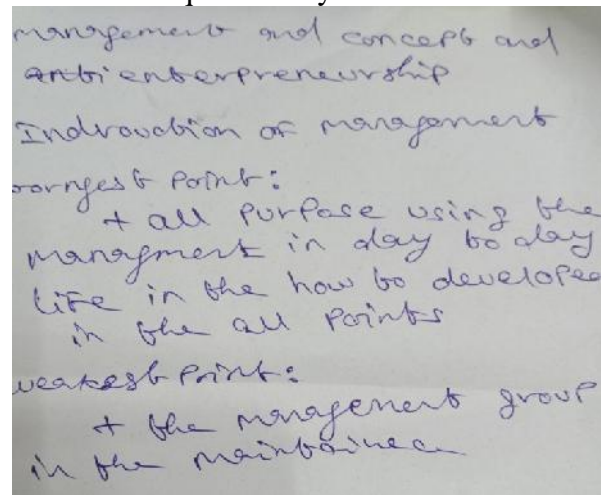 management and concept and
anti enterpreneurship
Indroduction of management
rongest Point:
+ all purpose using the
managment in day to day
life in the how to developed
in the all points
weakest Point:
+ the management group
in the maintainece